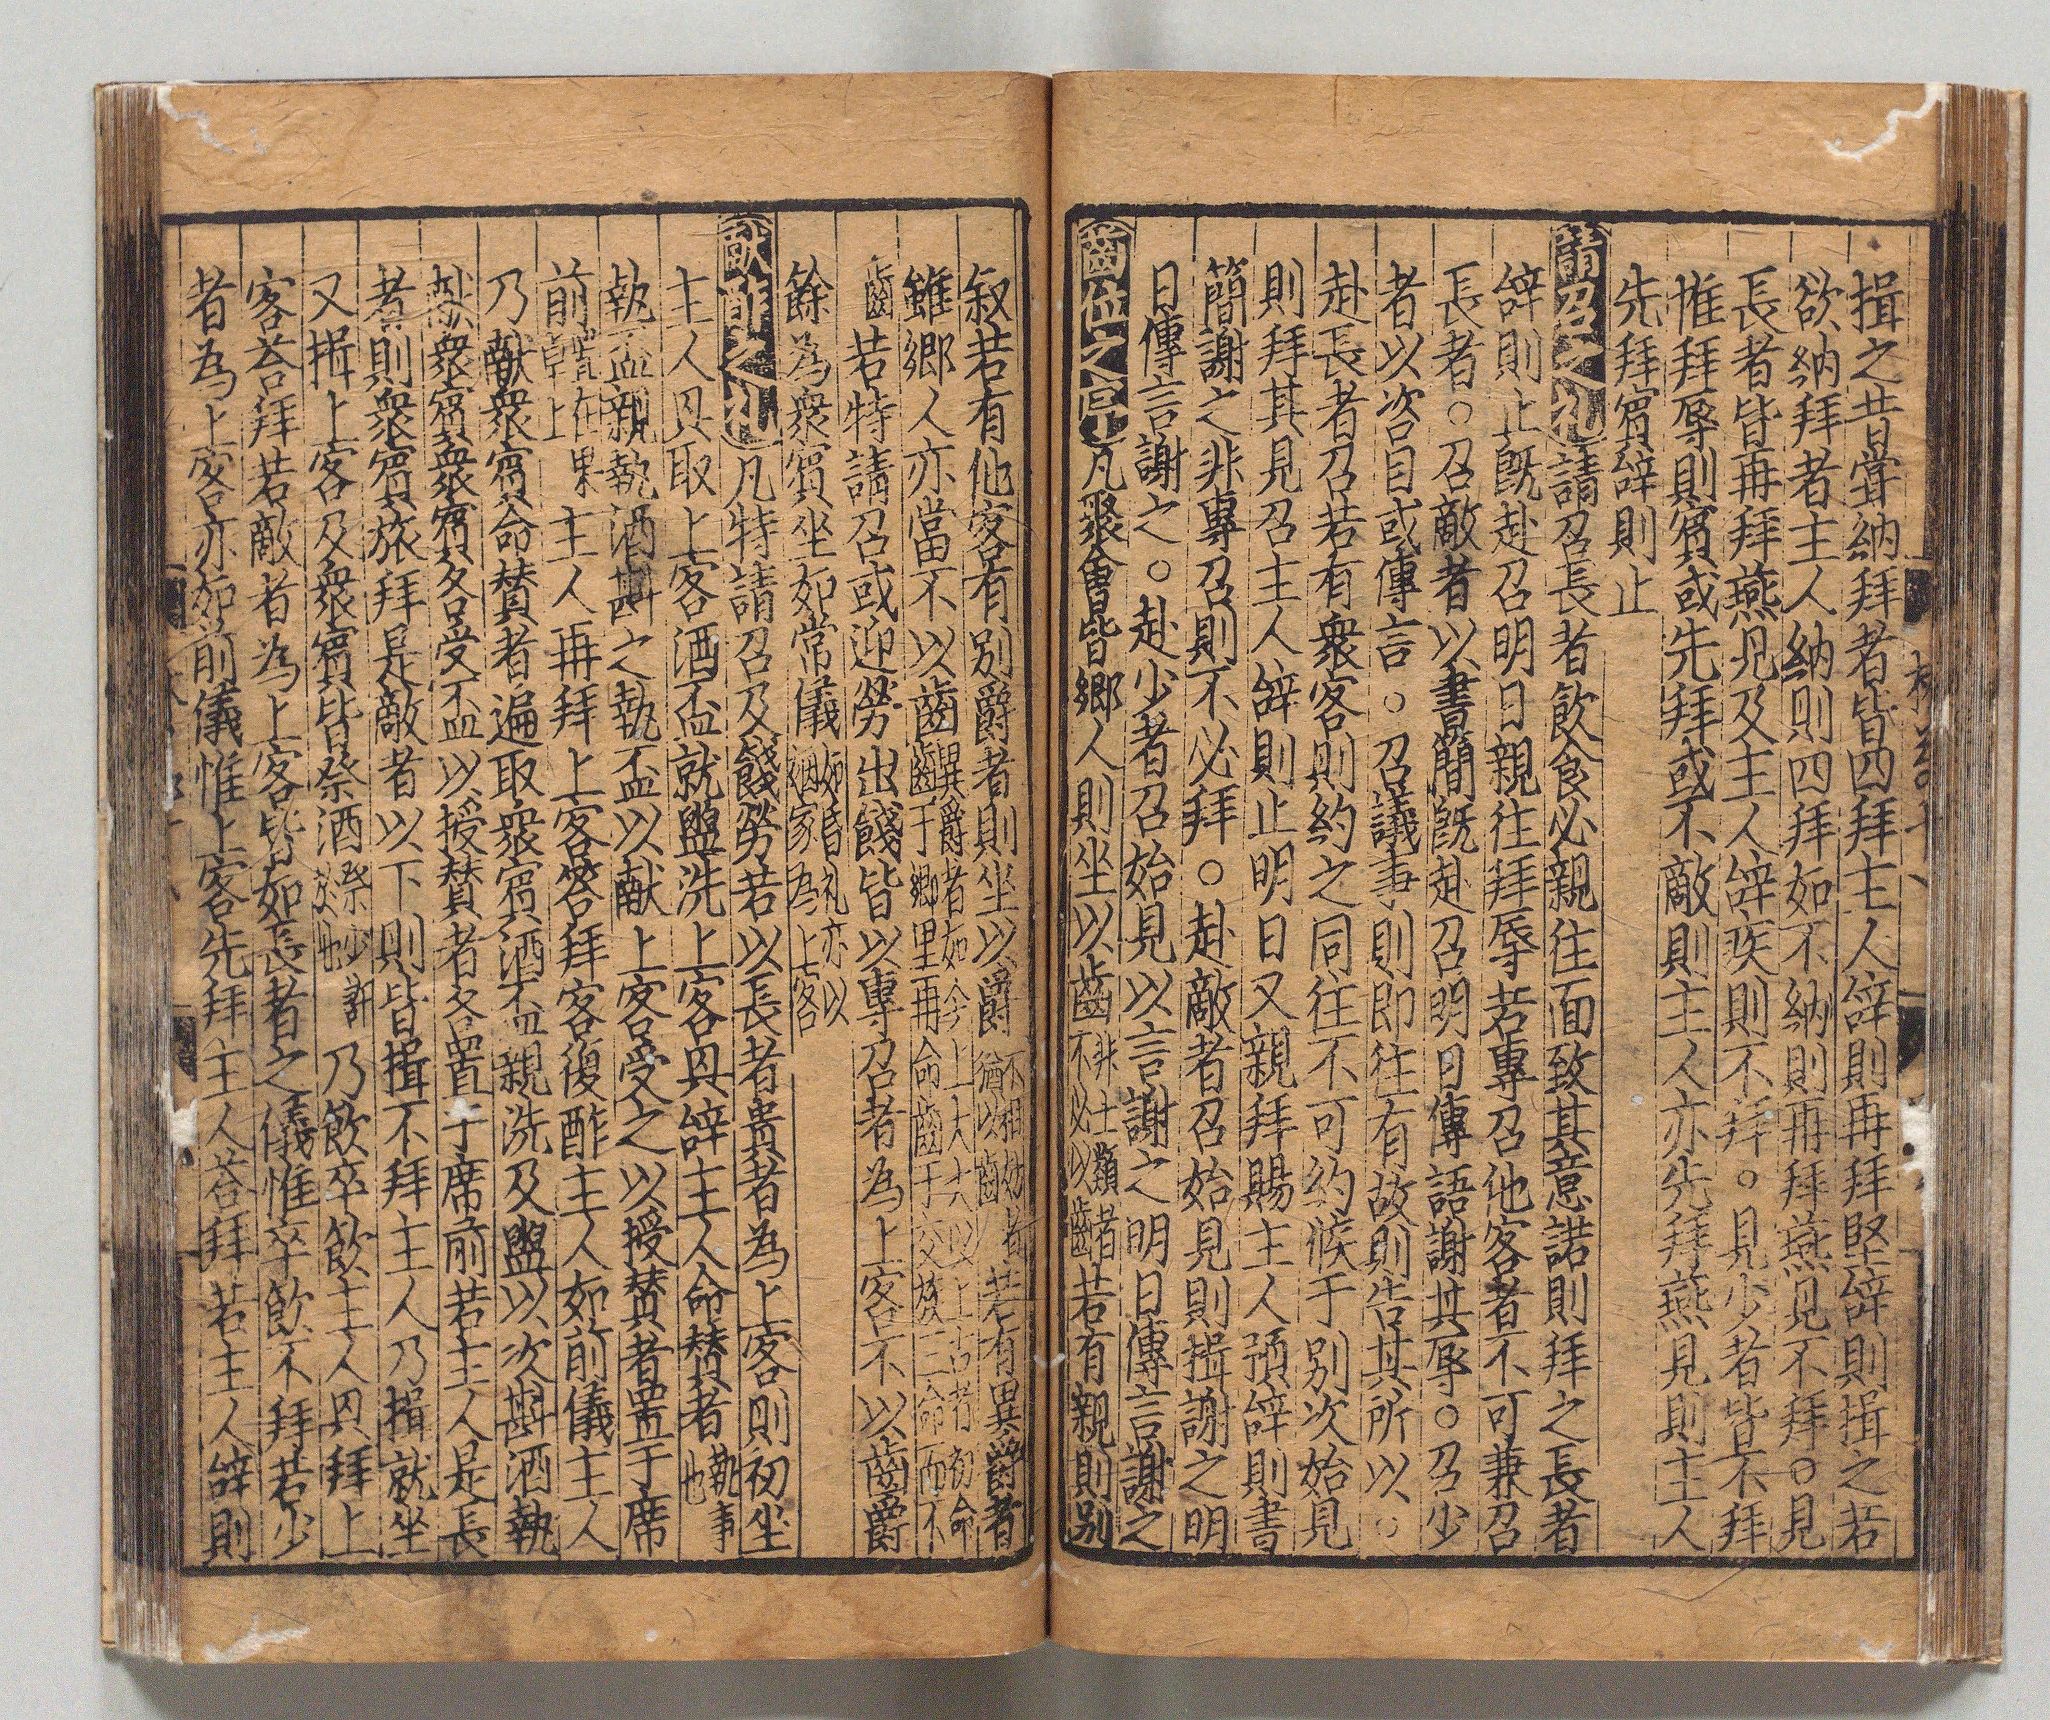 揖之昔甞納拜者皆四拜主人辝則再拜堅辝則揖之若
欲納拜者主人納則四拜如不納則再拜燕見不拜○見
長者皆再拜燕見及主人辝疾則不拜○見少者皆不拜
惟拜辱則賔或先拜或不敵則主人亦先拜燕見則主人
先拜賔辝則止
請召之礼請召長者飲食必親徃面致其意諾則拜之長者
辝則止旣赴召明日親徃拜辱若專召他客者不可兼召
長者○召敵者以書簡旣赴召明日傳語謝其辱○召少
者以咨目或傳言○召議事則即徃有故則告其所以○
赴長者召若有衆客則約之同徃不可約候于別次始見
則拜其見召主人辝則止明日又親拜賜主人預辝則書
簡謝之非專召則不必拜○赴敵者召始見則揖謝之明
日傳言謝之○赴少者召始見以言謝之明日傳言謝之
齒位之定凡聚會皆鄉人則坐以齒非士類者不必以齒若有親則別
叙若有他客有別爵者則坐以爵不相妨者猶以齒若有異爵者
雖鄉人亦當不以齒異爵者如今上大夫以上古者初命齒于鄉里再命齒于父族三命而不
齒若特請召或迎勞出餞皆以專召者為上客不以齒爵
餘為衆賔坐如常儀如昏礼亦以姻家為上客
獻酢之礼凡特請召及餞勞若以長者貴者為上客則初坐
主人具取上客酒盃就盥洗上客具辝主人命賛者執事也
執盃親執酒斟之執盃以獻上客受之以授賛者置于席
前甆在果卓上主人再拜上客荅拜客復酢主人如前儀主人
乃獻衆賔命賛者遍取衆賔酒盃親洗及盥以次斟酒執
獻衆賔衆賔各受盃以授賛者各置于席前若主人是長
者則衆賔旅拜是敵者以下則皆揖不拜主人乃揖就坐
又揖上客及衆賔皆祭酒祭少許於地乃飲卒飲主人具拜上
客荅拜若敵者為上客皆如長者之儀惟卒飲不拜若少
者為上客亦如前儀惟上客先拜主人荅拜若主人辝則